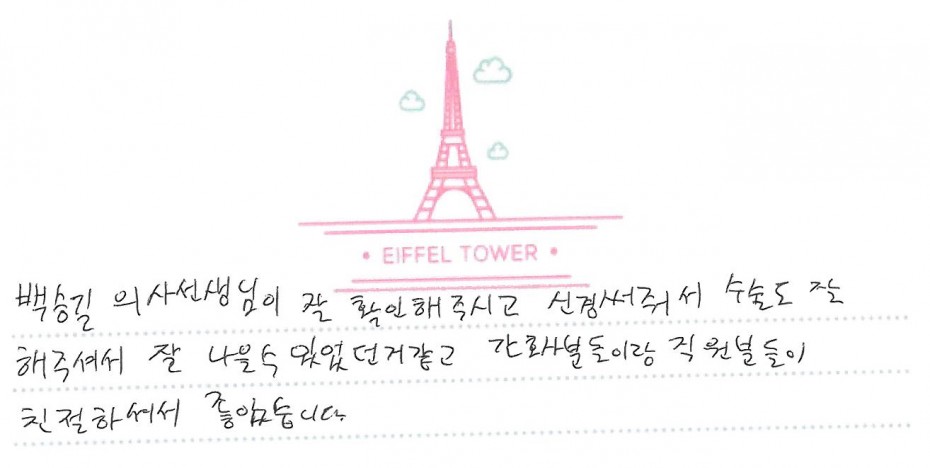 • EIFFEL TOWER •
백승길 의사선생님이 잘 확인해주시고 신경써줘서 수술도 잘
해주셔서 잘 나을수 있었던거같고 간호사분들이랑 직원분들이
친절하셔서 좋았습니다.